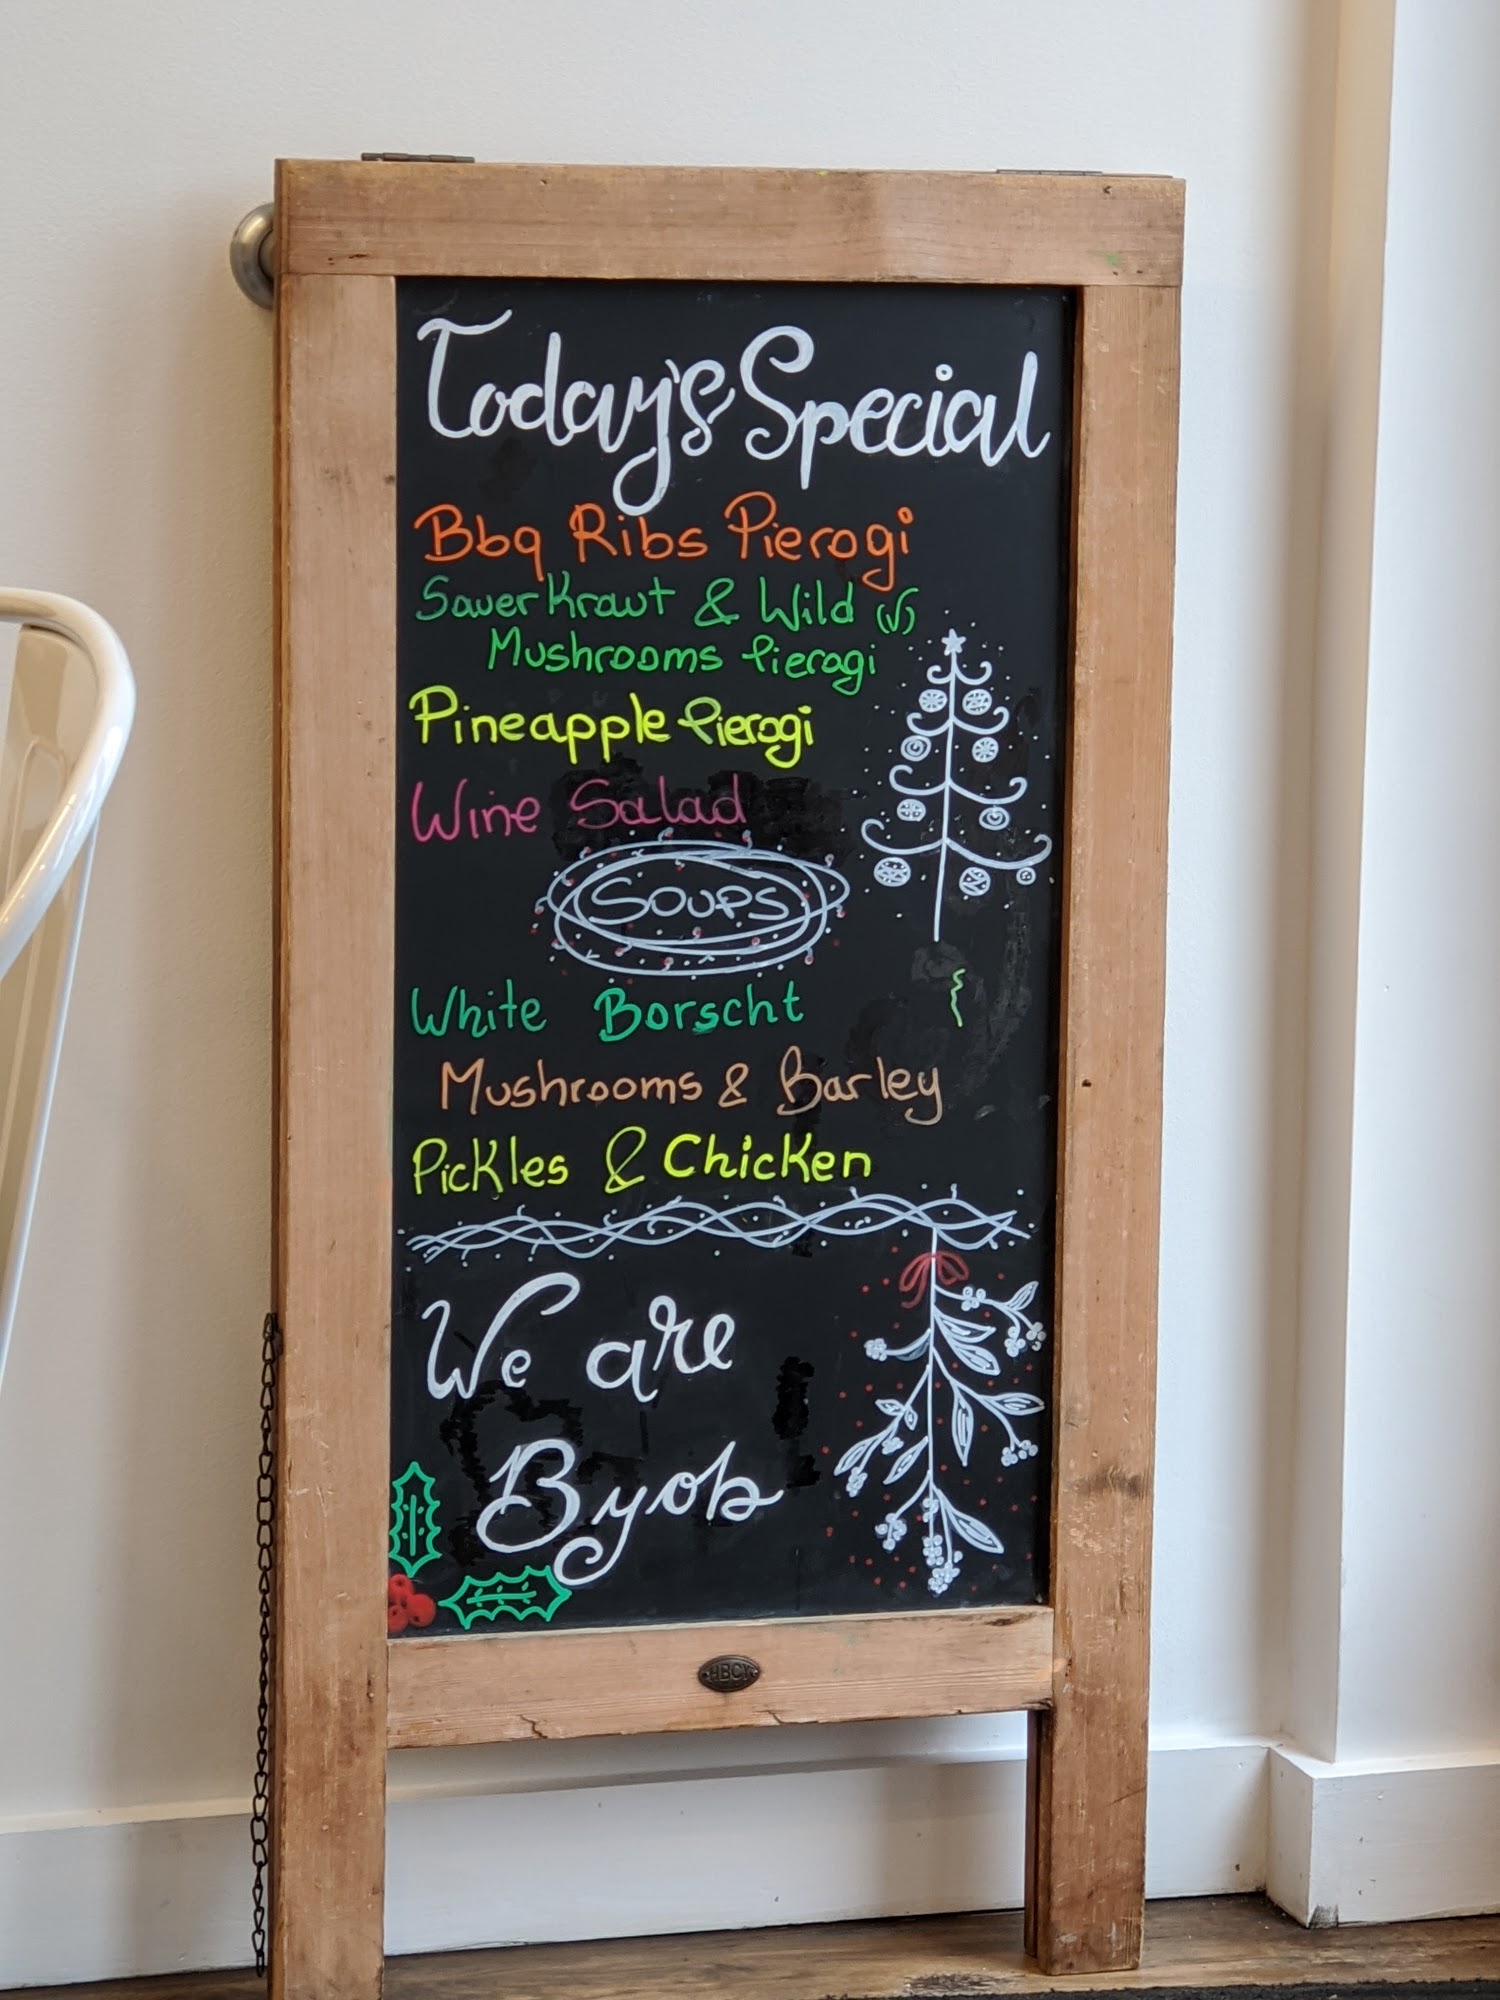 Today's Special
Bbq Ribs Pierogi
Sauer Kraut & Wild (V)
Mushrooms Pierogi
Pineapple Pierogi
Wine Salad
SOUPS
White Borscht
Mushrooms & Barley
Pickles & Chicken
We are
Byob
HBCY